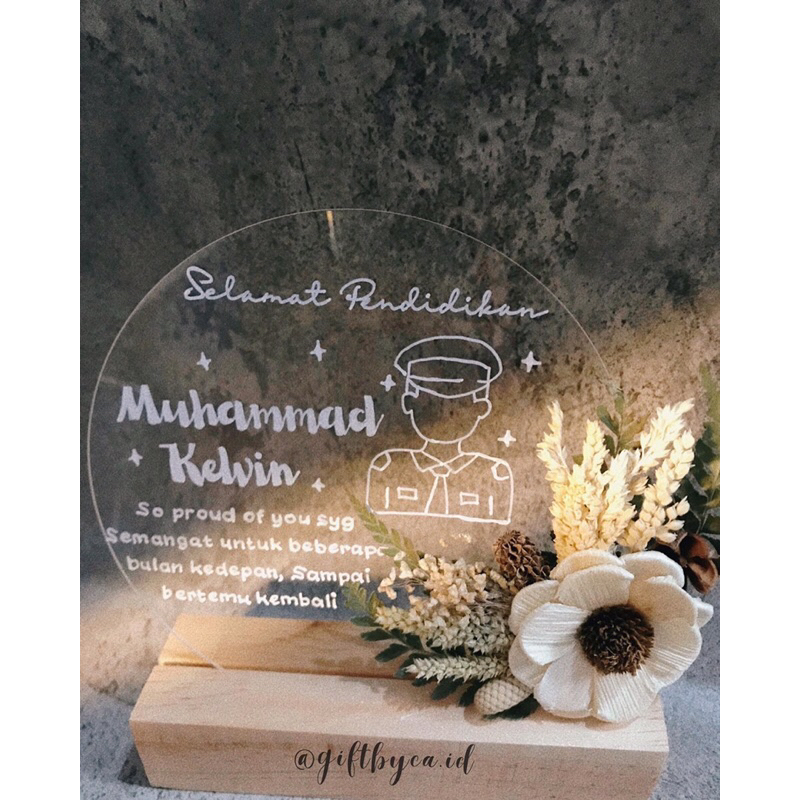 Selamat Pendidikan
Muhammad
Kelvin
So proud of you syg
Semangat untuk beberapa
bulan kedepan, Sampai
bertemu kembali
@giftbyca.id